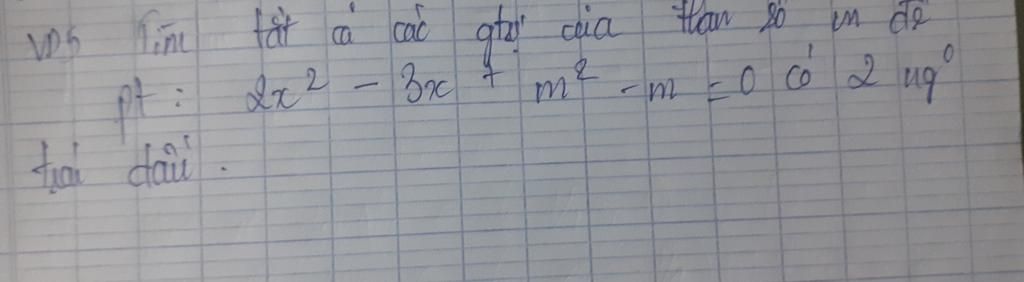 VD5 Tìm tất cả các gtrị của tham số m để
pt : 2x² - 3x + m² - m = 0 có 2 ng⁰
trái dấu .